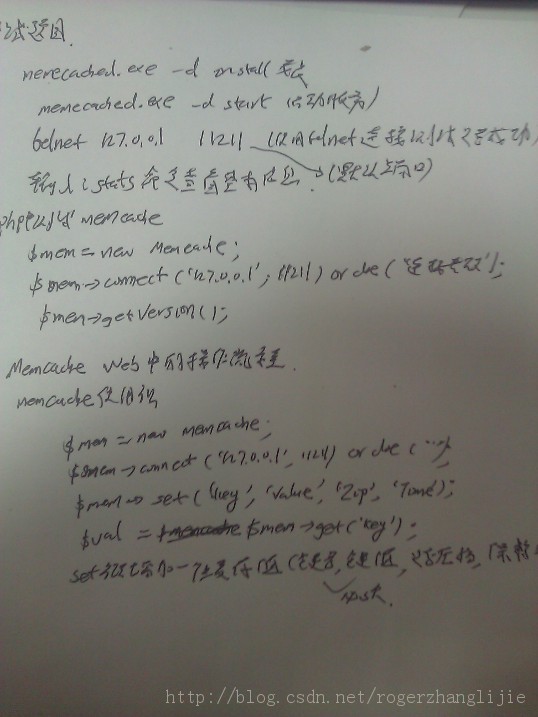 memecached.exe -d install 安装
memecached.exe -d start (启动服务)
telnet 127.0.0.1 11211 (使用telnet连接测试是否成功)
输入: stats 命令查看是否有反应. (默认端口)
php测试 memcache
$mem = new Memcache;
$mem->connect('127.0.0.1', 11211) or die('连接失败');
$mem->getVersion();
Memcache Web中的操作流程
memcache使用
$mem = new memcache;
$mem->connect('127.0.0.1', 11211) or die(...);
$mem->set('key', 'value', 'Zip', 'Time');
$val = $mem->get('key');
set 添加一个要存值
http://blog.csdn.net/rogerzhanglijie